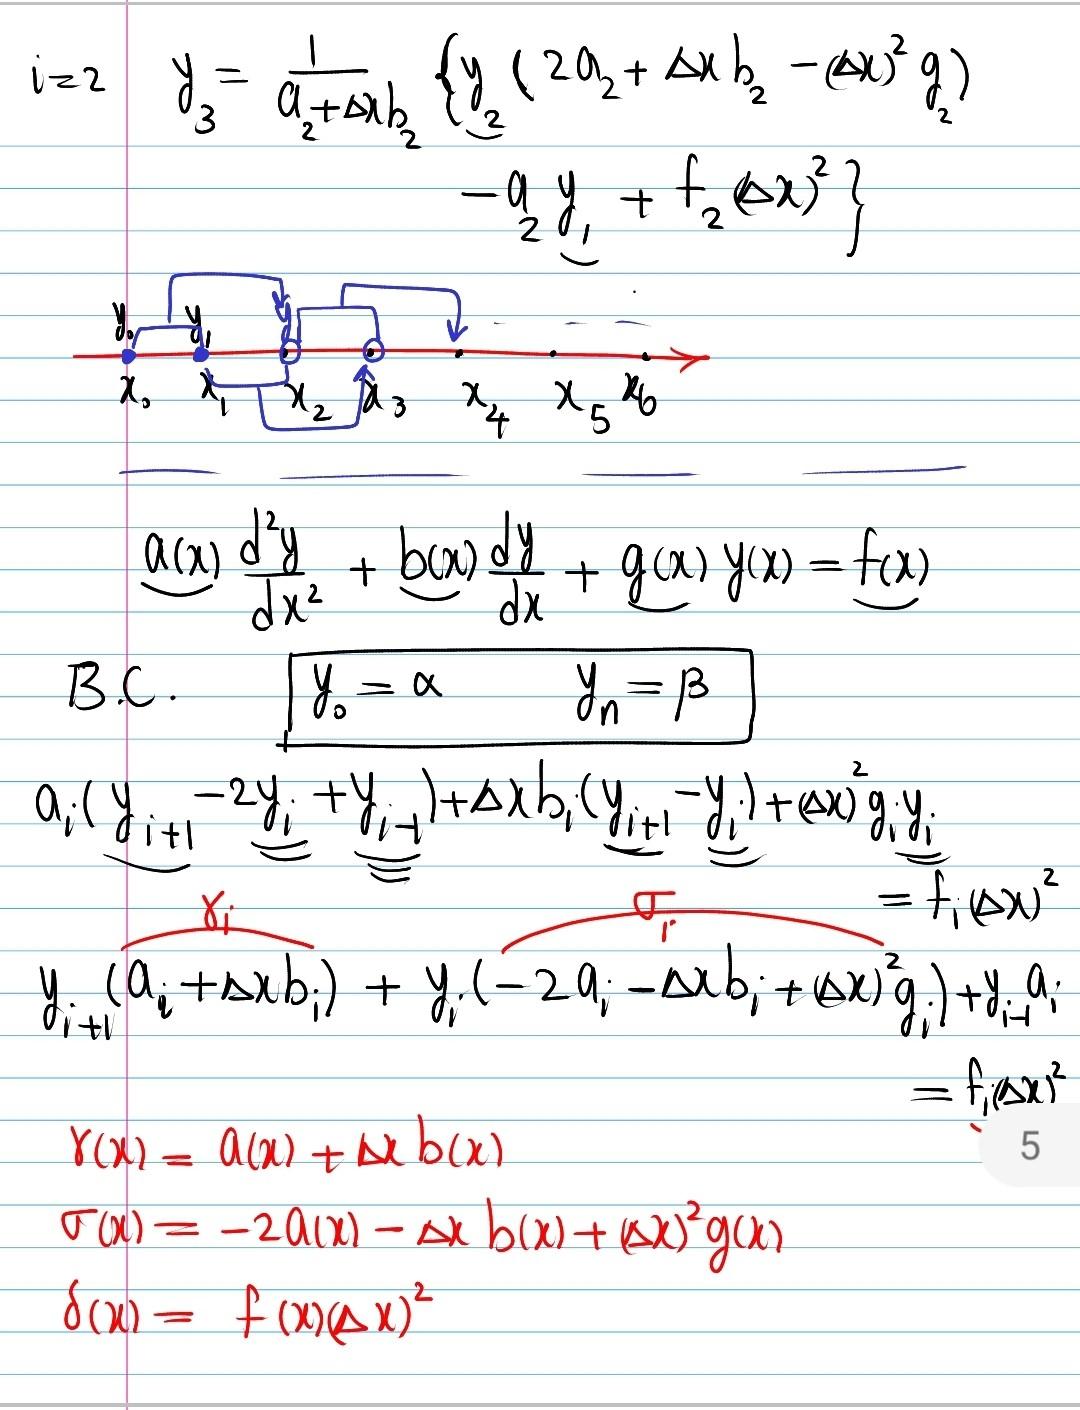 i=2 y₃ = 1/(a₂+Δxb₂) {y₂ (2a₂ + Δx b₂ − (Δx)² g₂)
− a₂ y₁ + f₂ (Δx)² }
y₀ y₁ y
x₀ x₁ x₂ x₃ x₄ x₅ x₆
a(x) d²y/dx² + b(x) dy/dx + g(x) y(x) = f(x)
B.C. y₀ = α yₙ = β
aᵢ(yᵢ₊₁ − 2yᵢ + yᵢ₋₁) + Δx bᵢ(yᵢ₊₁ − yᵢ) + (Δx)² gᵢyᵢ
= fᵢ(Δx)²
γᵢ σᵢ
yᵢ₊₁(aᵢ + Δx bᵢ) + yᵢ(−2aᵢ − Δx bᵢ + (Δx)² gᵢ) + yᵢ₋₁ aᵢ
= fᵢ(Δx)²
5
γ(x) = a(x) + Δx b(x)
σ(x) = −2a(x) − Δx b(x) + (Δx)² g(x)
δ(x) = f(x)(Δx)²